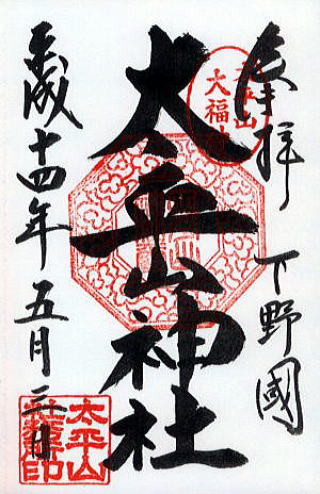 奉拝 下野國
太平山
大福神
太平山神社
平成十四年五月三日
太平山
社務所印